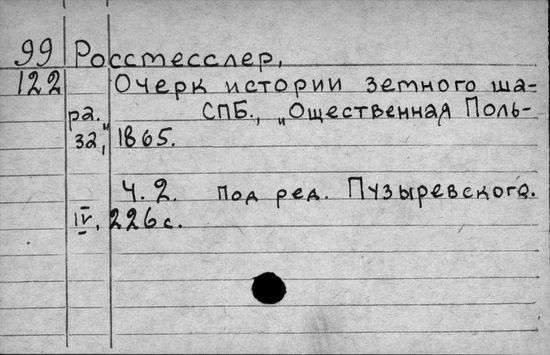 99 Росстесслер,
122 Очерк истории Зетного ша-
ра. СПБ., "Ощественная Поль-
за," 1865.
Ч. 2. Под ред. Пузыревского.
IV, 226 с.